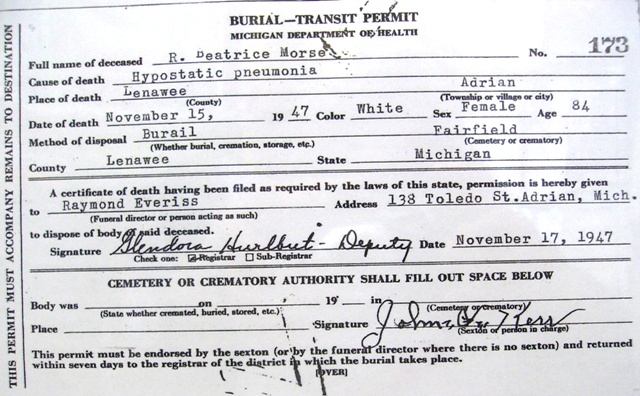 BURIAL—TRANSIT PERMIT
MICHIGAN DEPARTMENT OF HEALTH
Full name of deceased R. Beatrice Morse No. 173
Cause of death Hypostatic pneumonia
Place of death Lenawee Adrian
(County) (Township or village or city)
Date of death November 15, 1947 Color White Sex Female Age 84
Method of disposal Burail Fairfield
(Whether burial, cremation, storage, etc.) (Cemetery or crematory)
County Lenawee State Michigan
A certificate of death having been filed as required by the laws of this state, permission is hereby given
to Raymond Everiss Address 138 Toledo St.Adrian, Mich.
(Funeral director or person acting as such)
to dispose of body said deceased.
Signature Glendora Hurlbut - Deputy Date November 17, 1947
Check one: Registrar Sub-Registrar
CEMETERY OR CREMATORY AUTHORITY SHALL FILL OUT SPACE BELOW
Body was on 19 in
(State whether cremated, buried, stored, etc.) (Cemetery or crematory)
Place Signature John Kerr
(Sexton or person in charge)
This permit must be endorsed by the sexton (or by the funeral director where there is no sexton) and returned
within seven days to the registrar of the district in which the burial takes place.
(OVER)
THIS PERMIT MUST ACCOMPANY REMAINS TO DESTINATION